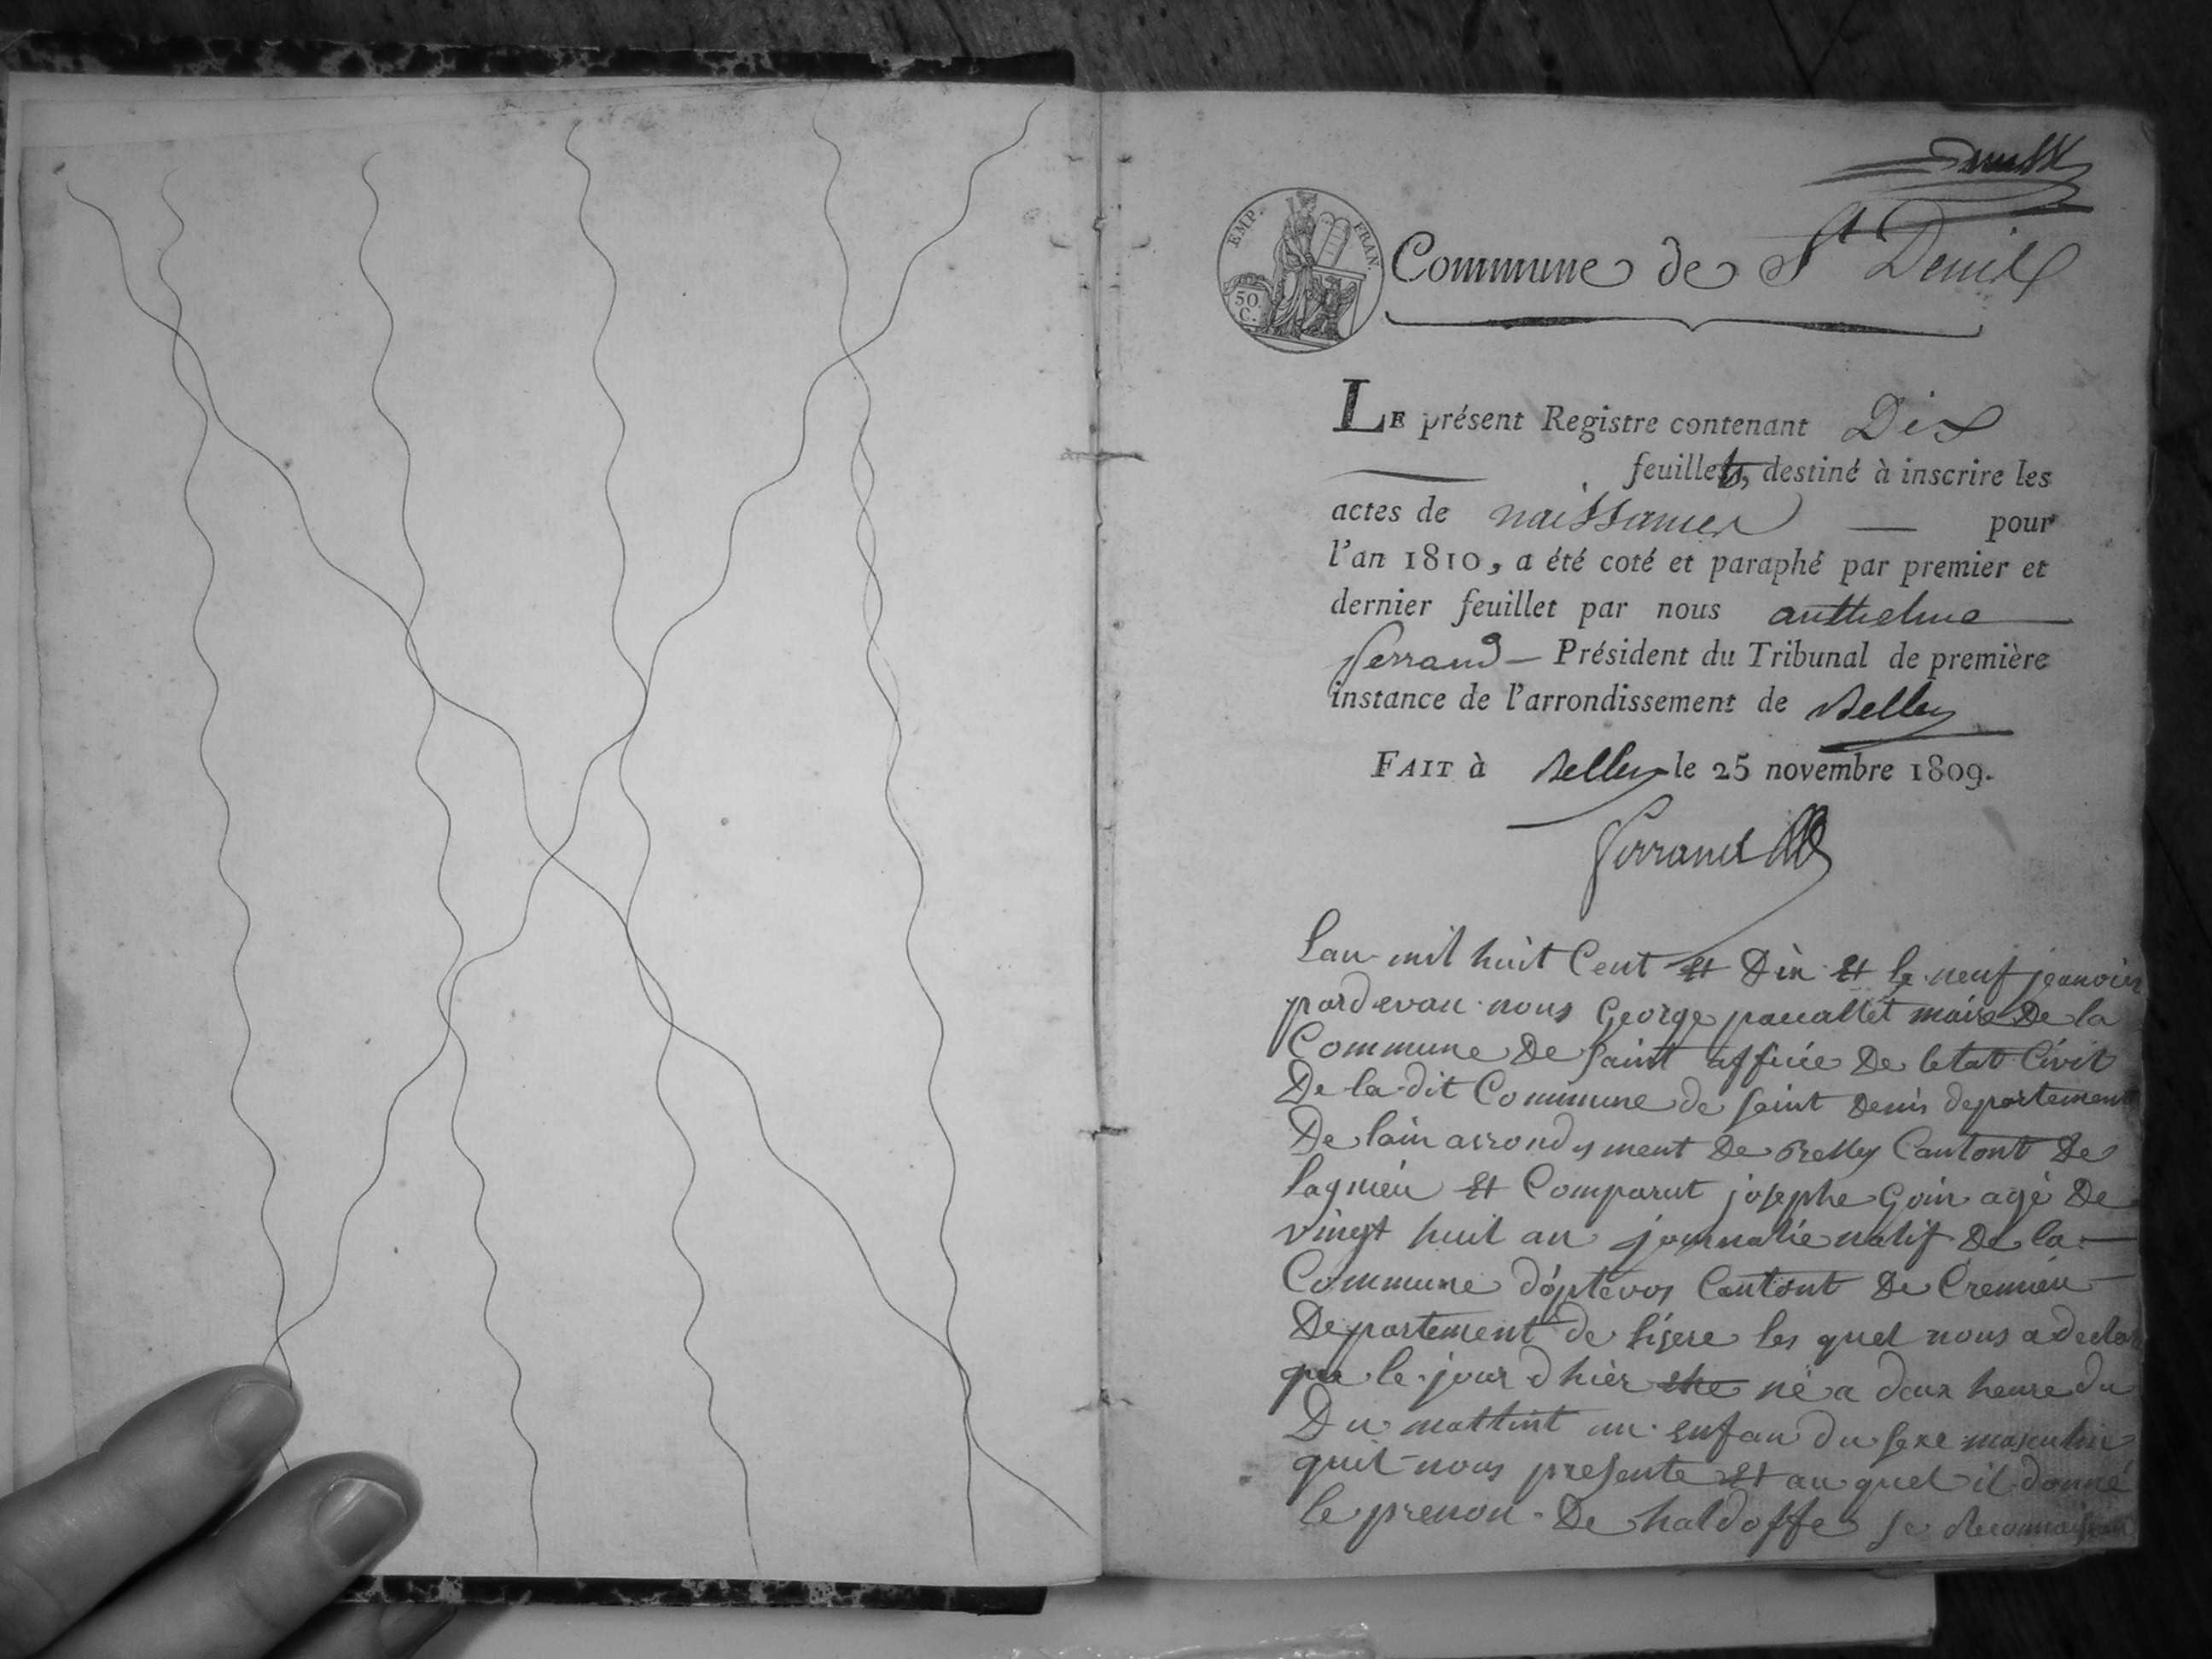 EMP. FRAN.
50 C.
Commune de St Denis
LE présent Registre contenant Dix
feuillets, destiné à inscrire les
actes de naissances pour
l'an 1810, a été coté et paraphé par premier et
dernier feuillet par nous anthelme
ferrand — Président du Tribunal de première
instance de l'arrondissement de Belley
FAIT à Belley le 25 novembre 1809.
ferrand
Lan mil huit Cent et Dix et le neuf jeanvier
pardevan nous George paucallet maire De la
Commune De saint officié De letat Civil
De la dit Commune de saint Denis departement
De lain arrondisment De Belley Cantont De
Lagnieu et Comparut josephe Goin agé De
vingt huit an journalié natif De la —
Commune d'optevos Cantont De Cremieu —
Departement de lisere les quel nous a declar
que le jour dhier né a deux heure du
Du mattint un enfan du sexe masculin
quil nous presente et au quel il donné
le prenon De haldoffe se